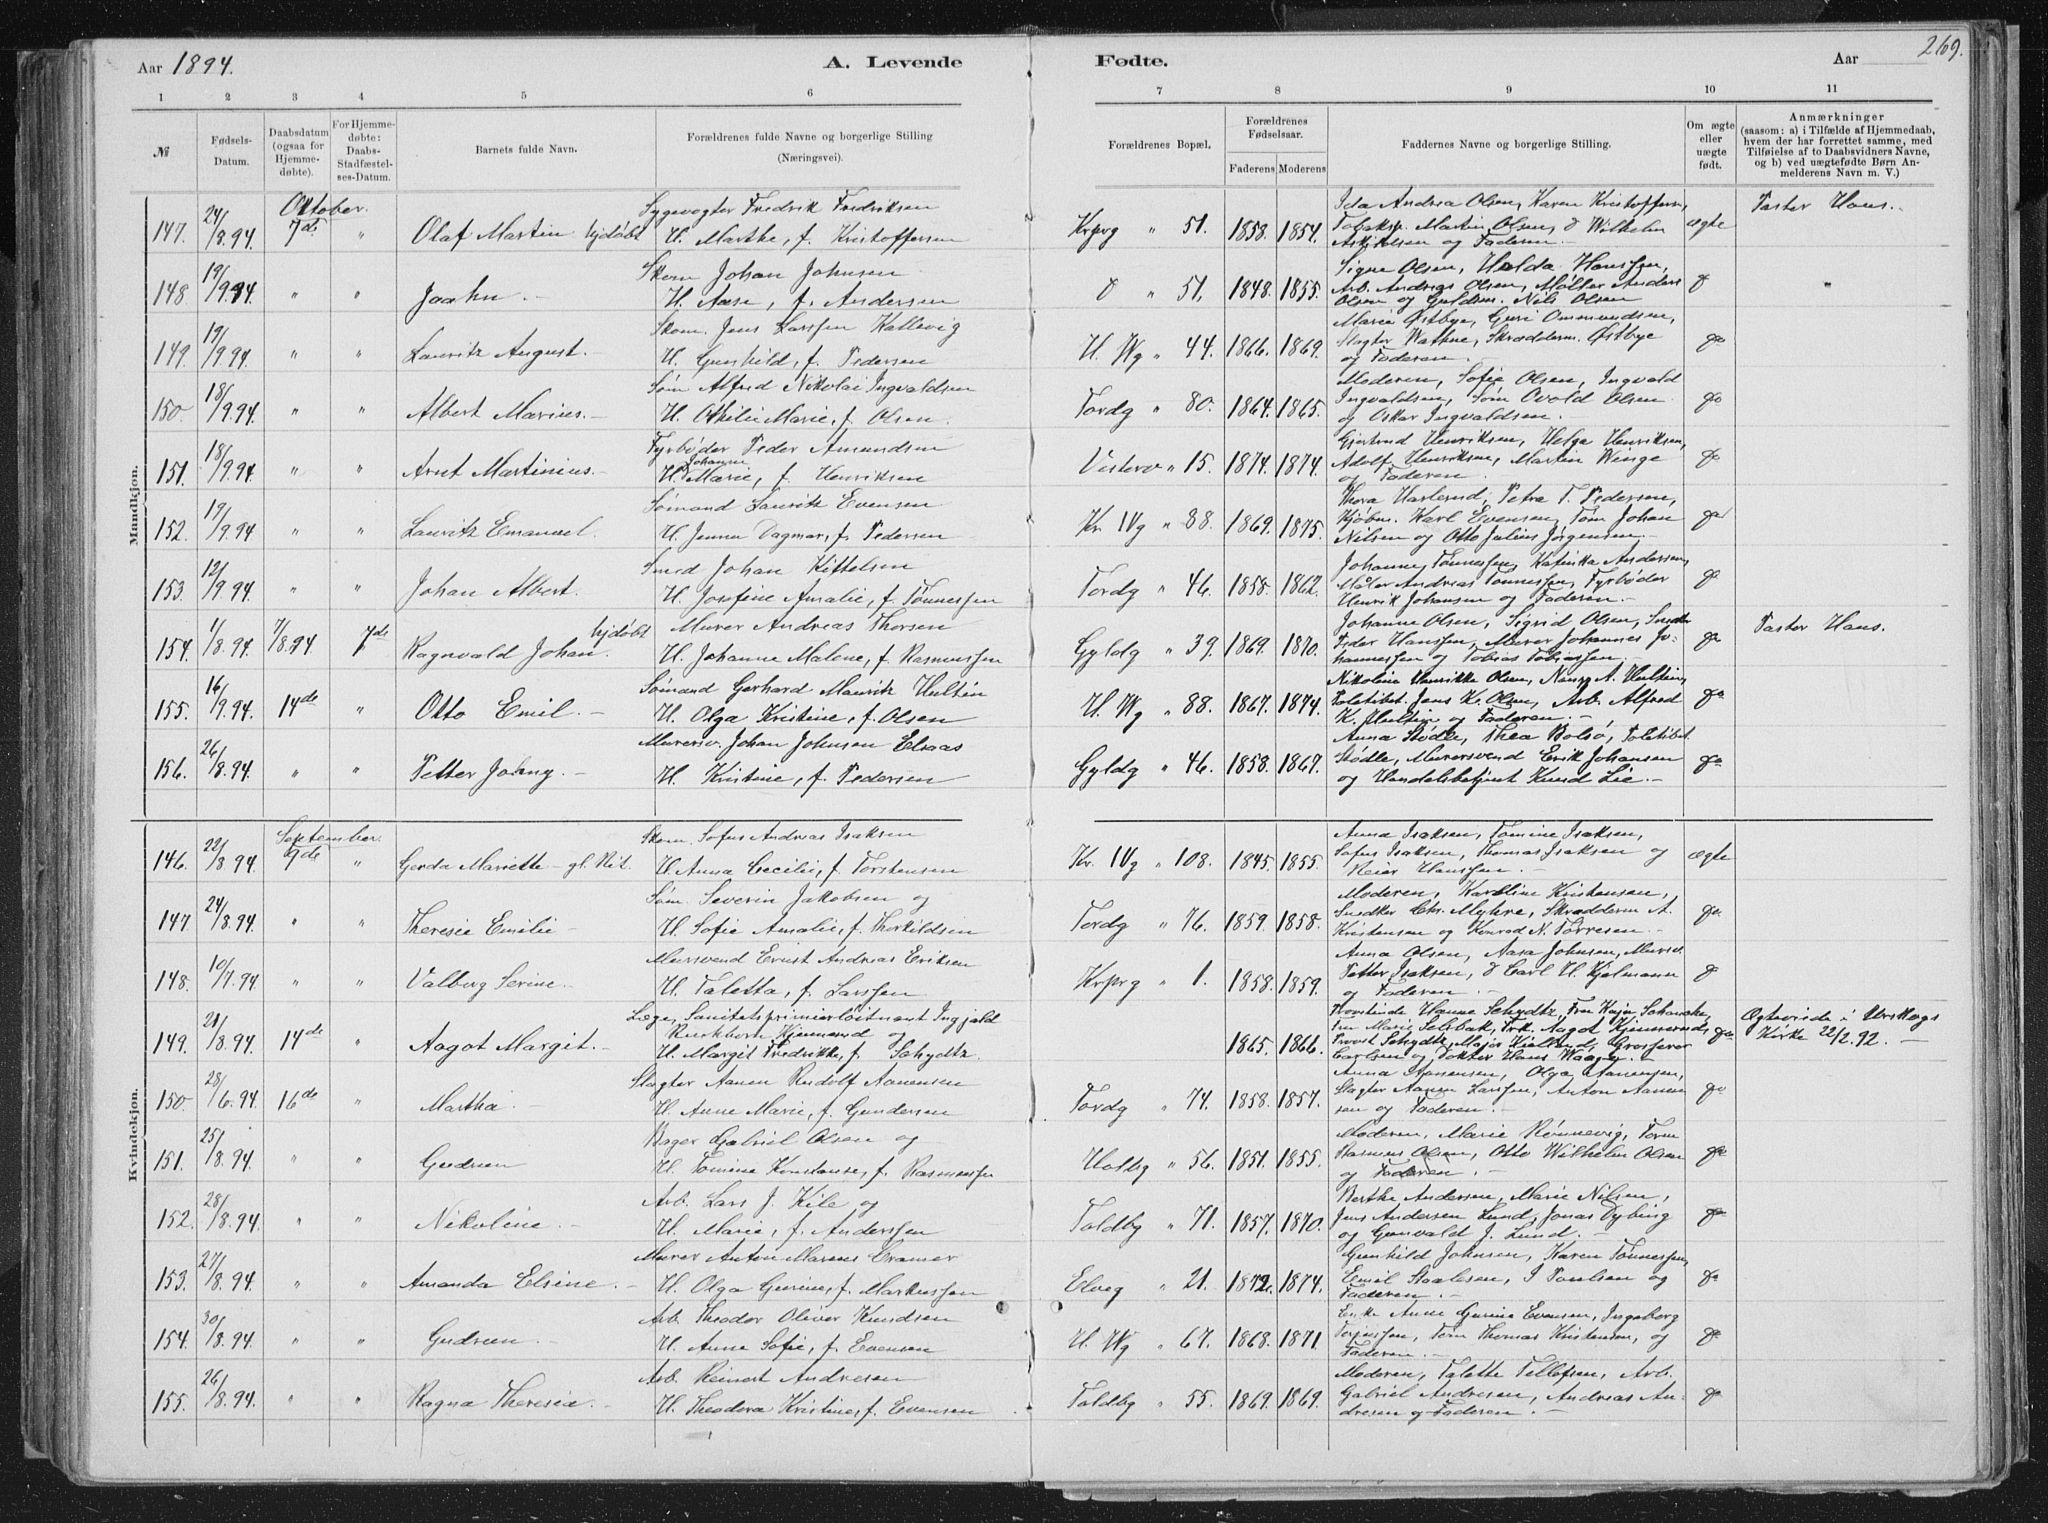 Aar 1894.
A. Levende Fødte.
Aar
269.
1 2 3 4 5 6 7 8 9 10 11
№
Fødsels-Datum.
Daabsdatum (ogsaa for Hjemme-døbte).
For Hjemme-døbte: Daabs-Stadfæstel-ses-Datum.
Barnets fulde Navn.
Forældrenes fulde Navne og borgerlige Stilling (Næringsvei).
Forældrenes Bopæl.
Forældrenes Fødselsaar.
Faderens Moderens
Faddernes Navne og borgerlige Stilling.
Om ægte eller uægte født.
Anmærkninger (saasom: a) i Tilfælde af Hjemmedaab, hvem der har forrettet samme, med Tilføielse af to Daabsvidners Navne, og b) ved uægtefødte Børn An-melderens Navn m. V.)
Mandkjøn.
Oktober.
Sygevogter Fredrik Fredriksen
Ida Andrea Olsen, Karen Kristoffersn,
147. 24/8.94. 7de " Olaf Martin hjdøbt H. Marthe, f. Kristoffersen Krprg " 51. 1858. 1854. Martin Olsen, d Wilhelm ægte Pastor Hans.
og Faderen.
Skom Johan Johnsen
Signe Olsen, Hulda Hanssen,
148. 19/9.94. " " Jaahn. H. Aase, f. Andersen " 51. 1848. 1855. Arb. Andreas Olsen, Møller Anders "
Olsen og Guldsm. Nils Olsen
Skom. Jens Larssen Kallevig
Marie Østbye, Guri Ommundsen,
149. 19/9.94. " " Lauritz August. H. Gunhild, f. Pedersen H. Wg " 44. 1866. 1869. Slagter Wathne, Skrædderm. Østbye do
og Faderen.
Søm Alfred Nikolai Ingvaldsen
Moderen, Sofie Olsen, Ingvald
150. 18/9.94. " " Albert Marius. H. Othilie Marie, f. Olsen. Tordg " 80. 1864. 1865. Ingvaldsen, Søm Olsen do
og Oskar Ingvaldsen.
Fyrbøder Peder Amundsen
Gjertrud Henriksen, Helga Henriksen,
151. 18/9.94. " " Arnt Martinius. H. Johanne Marie, f. Henriksen Vesterv " 15. 1874. 1874. Adolf Henriksen, Martin Winge do
og Faderen.
Sømand Lauritz Evensen
Thora Petra T. Pedersen,
152. 19/9.94. " " Lauritz Emanuel. H. Jenna Dagmar, f. Pedersen Kr. IVg " 88. 1869. 1875. Kjøbm. Karl Evensen, Tom Johan do
Nilsen og Otto Julius Jørgensen.
Smed Johan Kittelsen
Johanne Tønnessen, Katinka Andersen,
153. 12/9.94. " " Johan Albert. H. Josefine Amalie, f. Tønnessen Tordg " 46. 1858. 1862. Maler Andreas Tønnessen, Fyrbøder do
Henrik Johansen og Faderen.
Murer Andreas Thorsen
Johanne Olsen, Sigrid Olsen, Snedker
154. 1/8.94. 7/8.94 7de Ragnvald Johan. hjdøbt H. Johanne Malene, f. Rasmussen Gyldg " 39. 1869. 1870. Peder Hanssen, Murer Johannes Jo- do Pastor Hans.
hannessen og Tobias Tobiassen.
Sømand Gerhard Mauritz Hultin
Nikoline Henrikke Olsen, Nancy A. Hultin,
155. 16/9.94. 14de " Otto Emil. H. Olga Kristine, f. Olsen H. Wg " 88. 1867. 1874. Politibet. Jens K. Olsen, Arb. Alfred do
K. Hultin og Faderen.
Murersv. Johan Johnsen Elsaas
Anna Stødle, Thea Bolsø, Politibet.
156. 26/8.94. " " Petter Johny. H. Kristine, f. Pedersen Gyldg " 46. 1858. 1867. Stødle, Murersvend Erik Johansen do
og Handelsbetjent Knud Lie.
Kvindekjøn.
September.
Skom. Sofus Andreas Isaksen
Anna Isaksen, Tomine Isaksen,
146. 22/8.94. 9de " Gerda Mariette gl. Rit. H. Anna Cecilie, f. Torstensen Kr. IVg " 108. 1845. 1855. Sofus Isaksen, Thomas Isaksen og ægte
Reier Hanssen.
Søm. Severin Jakobsen og
Moderen, Karoline Kristensen,
147. 24/8.94. " " Theresie Emilie H. Sofie Amalie, f. Thorkildsen Tordg " 76. 1859. 1858. Snedker Chr. Myhre, Skrædderm A. do
Kristensen og Konrad N. Torresen.
Mursvend Ernst Andreas Eriksen
Anna Olsen, Aasa Johnsen,
148. 10/7.94. " " Valborg Serine. H. Taletta, f. Larssen Krprg " 1. 1858. 1859. Petter Isaksen, d Carl H. Hjelmann do
og Faderen.
Læge, Sanitetspremierløitnant Ingjald
Hanne Schydtz, Fru Kaja
Kjennerud og
Fru Marie Selsbak, Frk. Aagot Kjennerud,
149. 21/8.94. 14de " Aagot Margit. H. Margit Fredrikke, f. Schydtz. 1865. 1866. Provst Schydtz, Major Kielland, Grosserer do Ægteviede i Urskogs Kirke 22/2.92.
Carlsen og Doktor Hans Waage.
Slagter Aanen Rudolf Aanensen
Anna Aanensen, Olga Aanensen,
150. 28/6.94. 16de " Martha. H. Anne Marie, f. Gundersen Tordg " 74. 1858. 1857. Slagter Aanen Larssen, Anton Aanen- do
sen og Faderen.
Bager Gabriel Olsen og
Moderen, Marie Rønnevig, Tom
151. 25/8.94. " " Gudrun H. Tomine Konstanse, f. Rasmussen Holbg " 56. 1851. 1855. Rasmus Olsen, Otto Wilhelm Olsen do
og Faderen.
Arb. Lars J. Kile og
Berthe Andersen, Marie Nilsen,
152. 28/8.94. " " Nikoline. H. Marie, f. Anderssen Toldbg " 71. 1857. 1870. Jens Andersen Lund, Jonas Dybing do
og Gunvald J. Lund.
Murer Anton Marens Cramer
Gunhild Johnsen, Karen Tønnessen,
153. 27/8.94. " " Amanda Elsine. H. Olga Gurine, f. Markussen Elveg " 21. 1872. 1874. Emil Staalesen, I Paulsen og do
Faderen.
Arb. Theodor Oliver Knudsen
Enke Anne Gurine Evensen, Ingeborg
154. 30/8.94. " " Gudrun. H. Anne Sofie, f. Evensen H. Wg " 67. 1868. 1871. Tom Thomas Kristensen, og do
Faderen.
Arb. Reinert Andresen
Moderen, Talette Tellefsen, Arb.
155. 26/8.94. " " Ragna Theresia. H. Theodora Kristine, f. Evensen Toldbg " 55. 1869. 1869. Gabriel Andresen, Andreas An- do
dresen og Faderen.